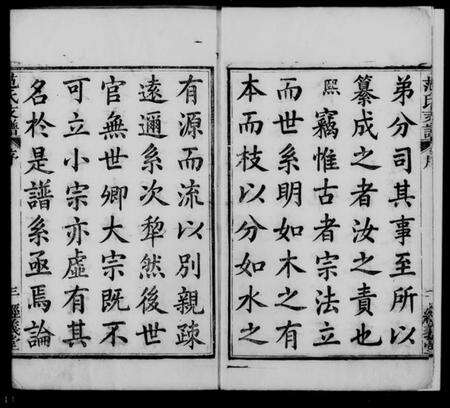 弟分司其事至所以
纂成之者汝之責也
熙竊惟古者宗法立
而世系明如木之有
本而枝以分如水之
有源而流以別親疎
遠邇系次犂然後世
官無世卿大宗既不
可立小宗亦虛有其
名於是譜系亟焉論
范氏支譜
序
三